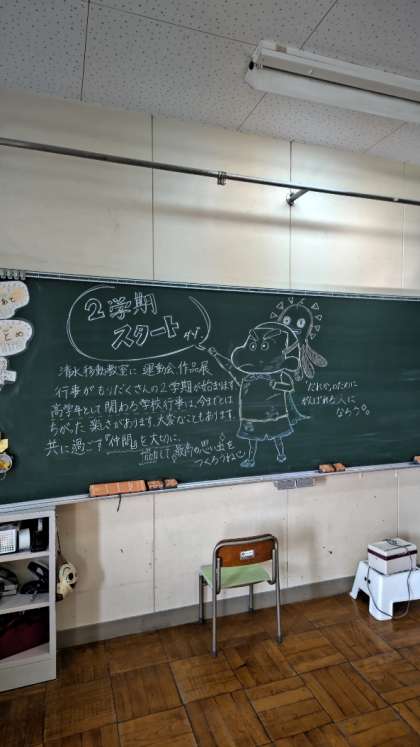 2学期
スタート
清水移動教室に 運動会 作品展
行事がもりだくさんの2学期が始まります
高学年として関わる学校行事は、今までとは
ちがった 楽しさがあります。大変なこともあります。
共に過ごす『仲間』を大切に。
協力して『最高の思い出を
つくろうね』
だれかのために
がんばれる人に
なろう。